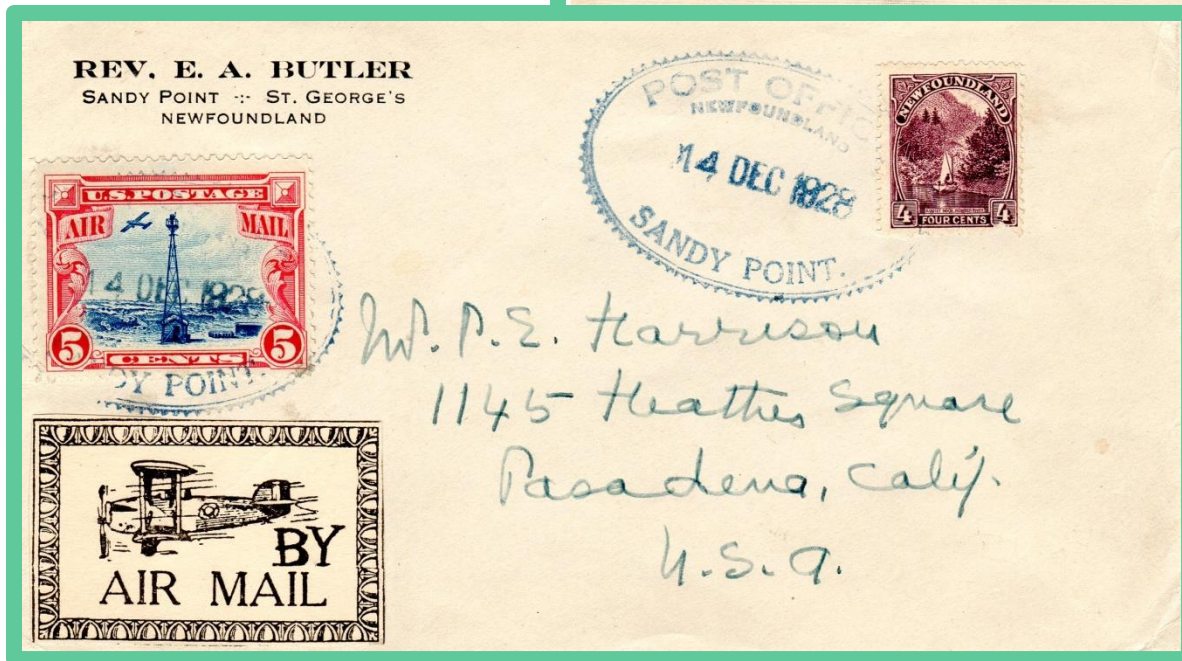 REV. E. A. BUTLER
SANDY POINT -:- ST. GEORGE'S
NEWFOUNDLAND
POST OFFIC
NEWFOUNDLAND
14 DEC 1928
SANDY POINT.
NEWFOUNDLAND
4 4
FOUR CENTS
U.S. POSTAGE
AIR MAIL
14 DEC 1928
5 5
CENTS
DY POINT.
Mr. P. E. Harrison
1145 Heather Square
Pasadena, Calif.
U.S.A.
BY
AIR MAIL